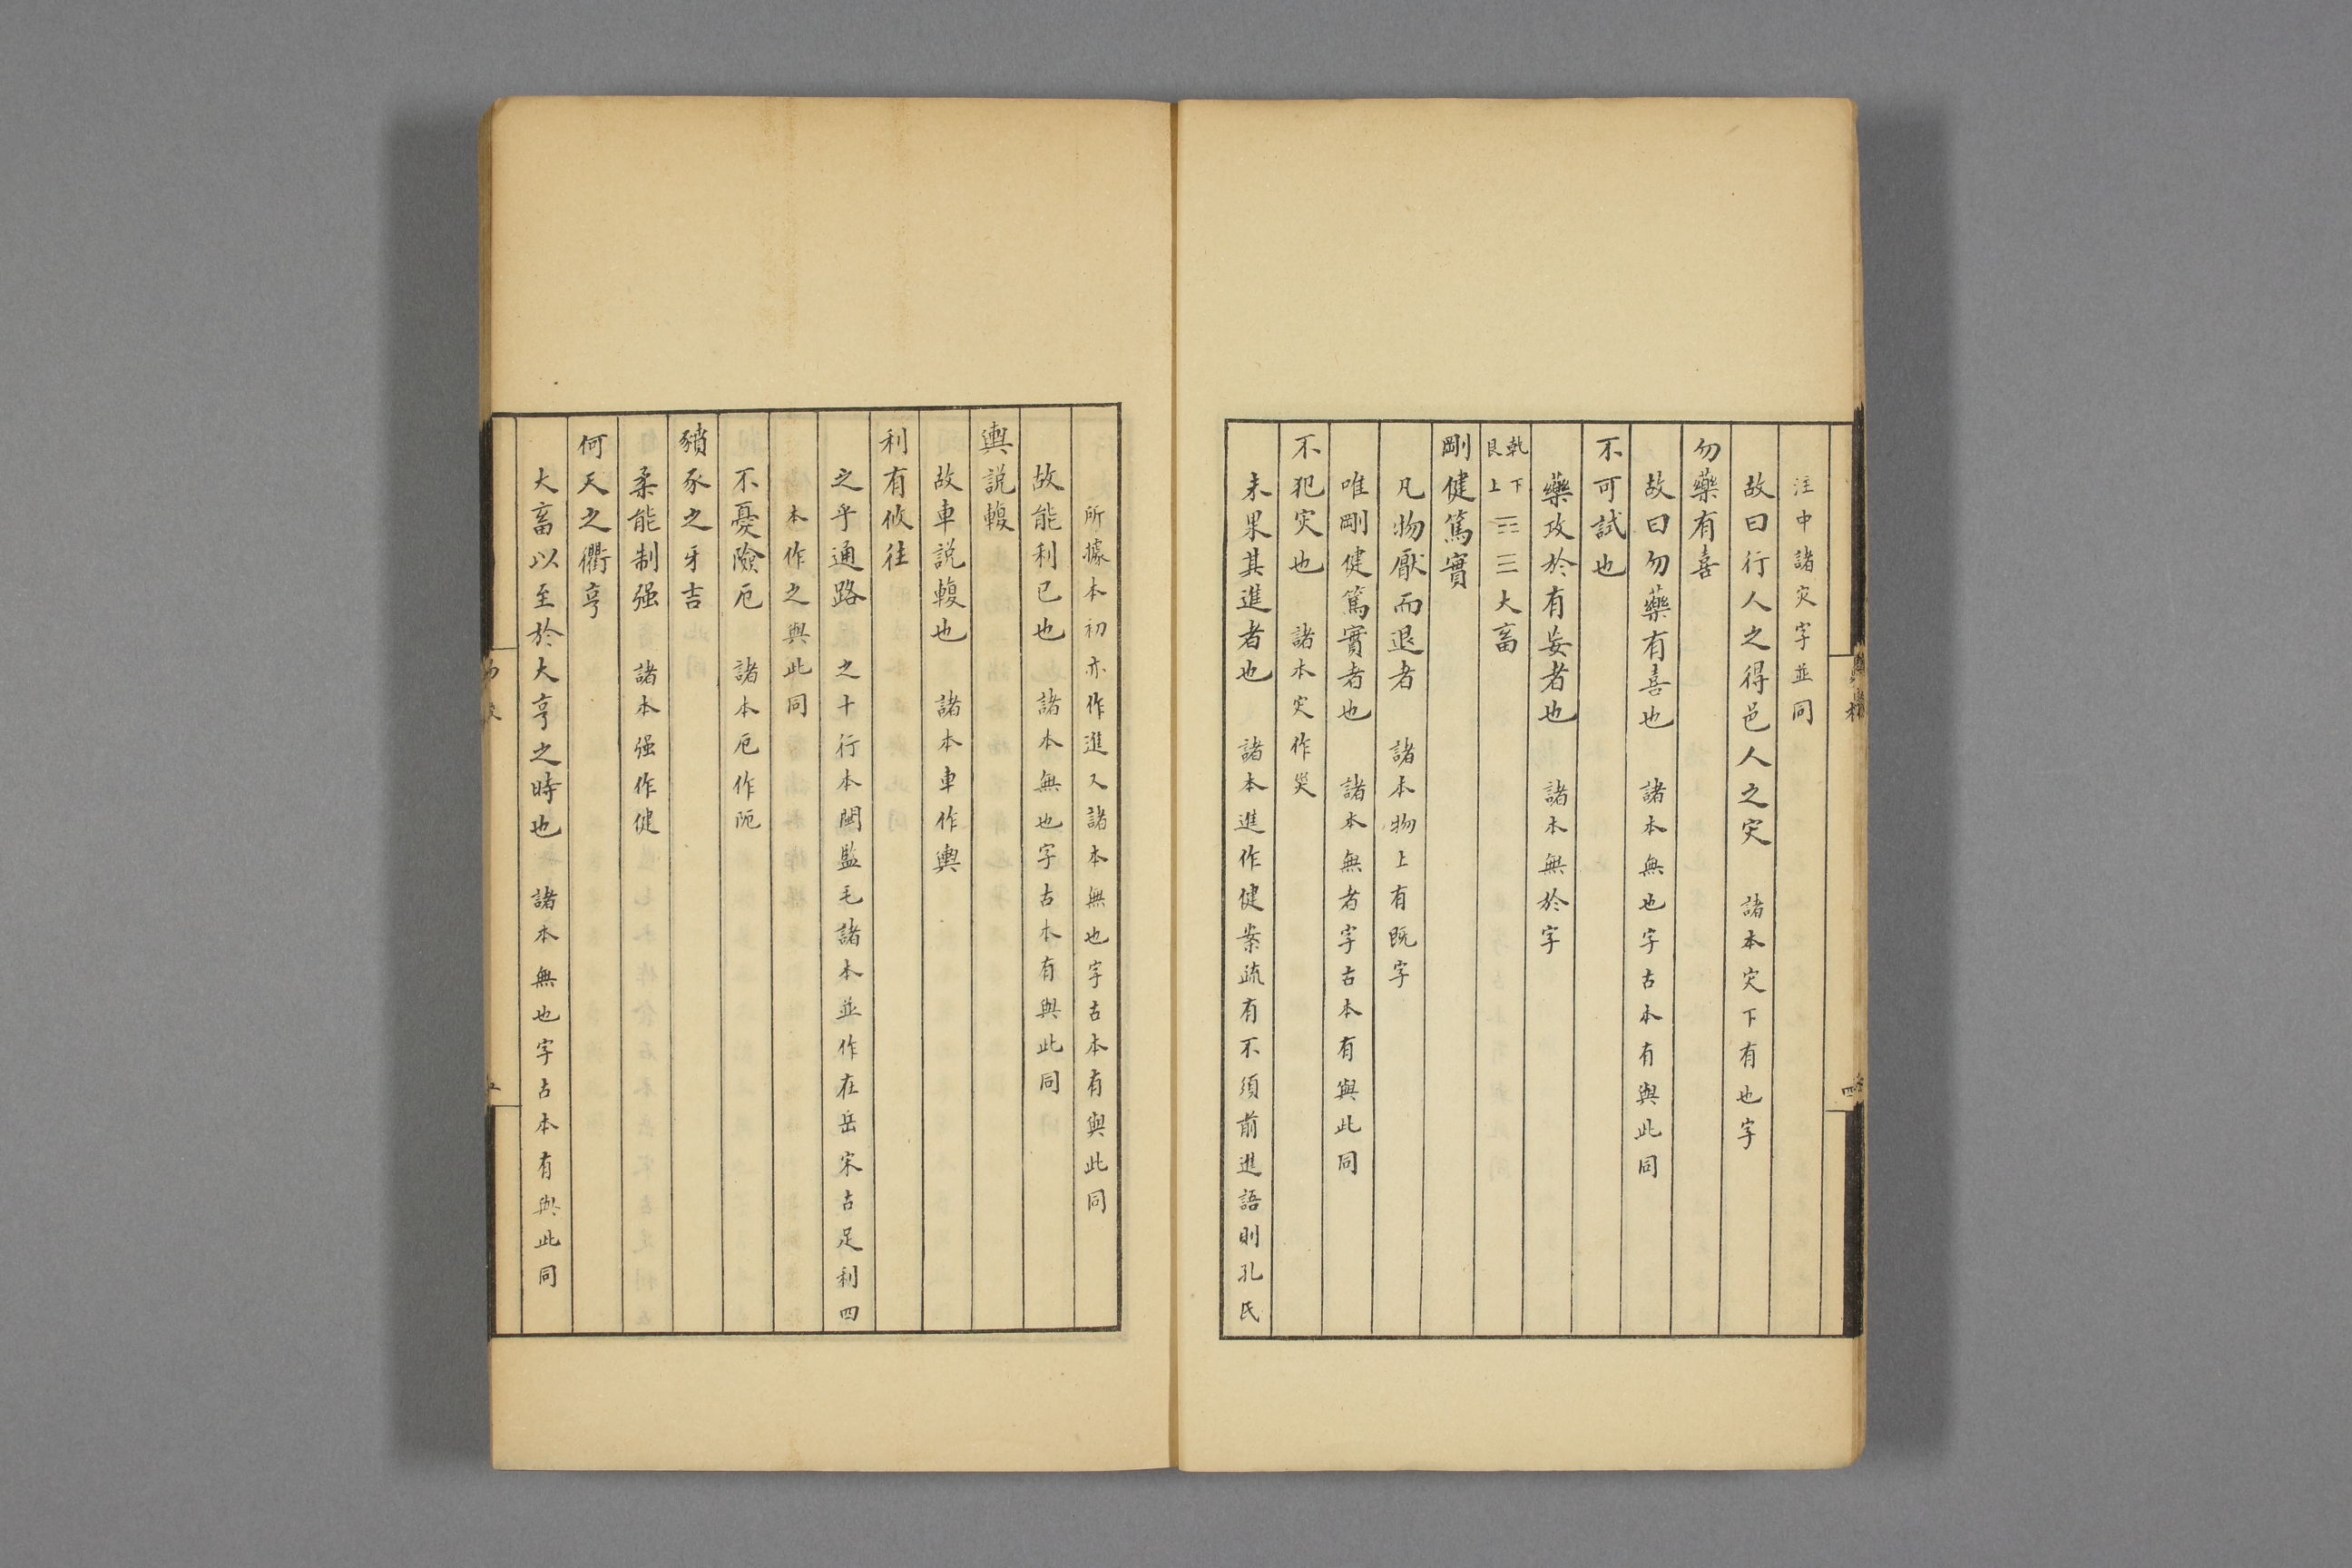 注中諸灾字並同
故曰行人之得邑人之灾　諸本灾下有也字
勿藥有喜
故曰勿藥有喜也　諸本無也字古本有與此同
不可試也
藥攻於有妄者也　諸本無於字
乾下艮上䷙大畜
剛健篤實
凡物厭而退者　諸本物上有既字
唯剛健篤實者也　諸本無者字古本有與此同
不犯灾也　諸本灾作災
未果其進者也　諸本進作健案疏有不須前進語則孔氏
所據本初亦作進又諸本無也字古本有與此同
故能利已也　諸本無也字古本有與此同
輿説輹
故車説輹也　諸本車作輿
利有攸往
之乎通路　之十行本閩監毛諸本並作在岳宋古足利四
本作之與此同
不憂險厄　諸本厄作阨
豶豕之牙吉
柔能制强　諸本强作健
何天之衢亨
大畜以至於大亨之時也　諸本無也字古本有與此同